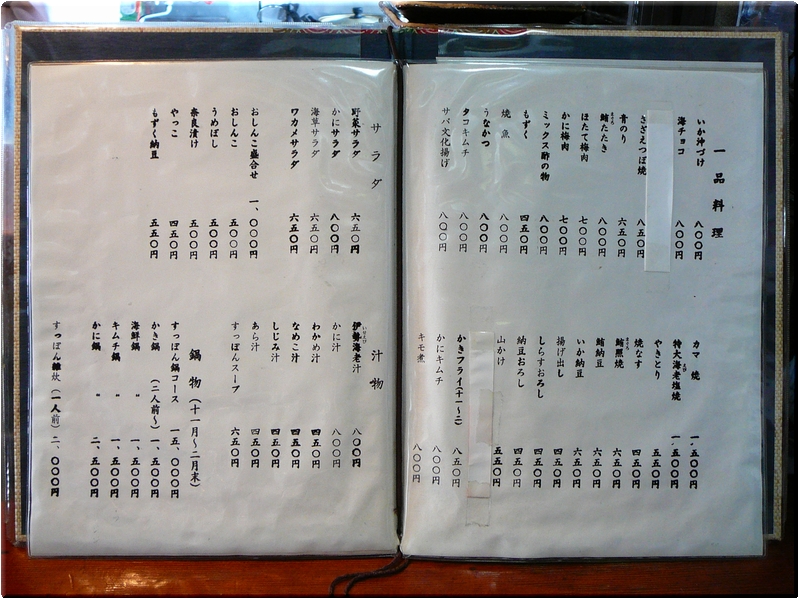 一品料理
いか沖づけ 八〇〇円
海チョコ 八〇〇円
さざえつぼ焼 八五〇円
青のり 六五〇円
鮪たたき 八〇〇円
ほたて梅肉 七〇〇円
かに梅肉 七〇〇円
ミックス酢の物 八〇〇円
もずく 四五〇円
焼魚 八〇〇円
うなかつ 八〇〇円
タコキムチ 八〇〇円
サバ文化揚げ 八〇〇円
カマ焼 一、五〇〇円
特大海老塩焼 一、五〇〇円
やきとり 五五〇円
焼なす 四五〇円
鮪黒焼 六五〇円
鮪納豆 六五〇円
いか納豆 六五〇円
揚げ出し 四五〇円
しらすおろし 四五〇円
納豆おろし 四五〇円
山かけ 五五〇円
かきフライ(十一~二) 八五〇円
かにキムチ 八〇〇円
キモ煮 八〇〇円
サラダ
野菜サラダ 六五〇円
かにサラダ 八〇〇円
海草サラダ 六五〇円
ワカメサラダ 六五〇円
おしんこ盛合せ 一、〇〇〇円
おしんこ 五〇〇円
うめぼし 五〇〇円
奈良漬け 五〇〇円
やっこ 四五〇円
もずく納豆 五五〇円
汁物
伊勢海老汁 八〇〇円
かに汁 八〇〇円
わかめ汁 四五〇円
なめこ汁 四五〇円
しじみ汁 四五〇円
あら汁 四五〇円
すっぽんスープ 六五〇円
鍋物(十一月~二月末)
すっぽん鍋コース 一五、〇〇〇円
かき鍋(二人前~) 一、五〇〇円
海鮮鍋 〃 一、五〇〇円
キムチ鍋 〃 一、五〇〇円
かに鍋 〃 二、五〇〇円
すっぽん雑炊(一人前) 二、〇〇〇円